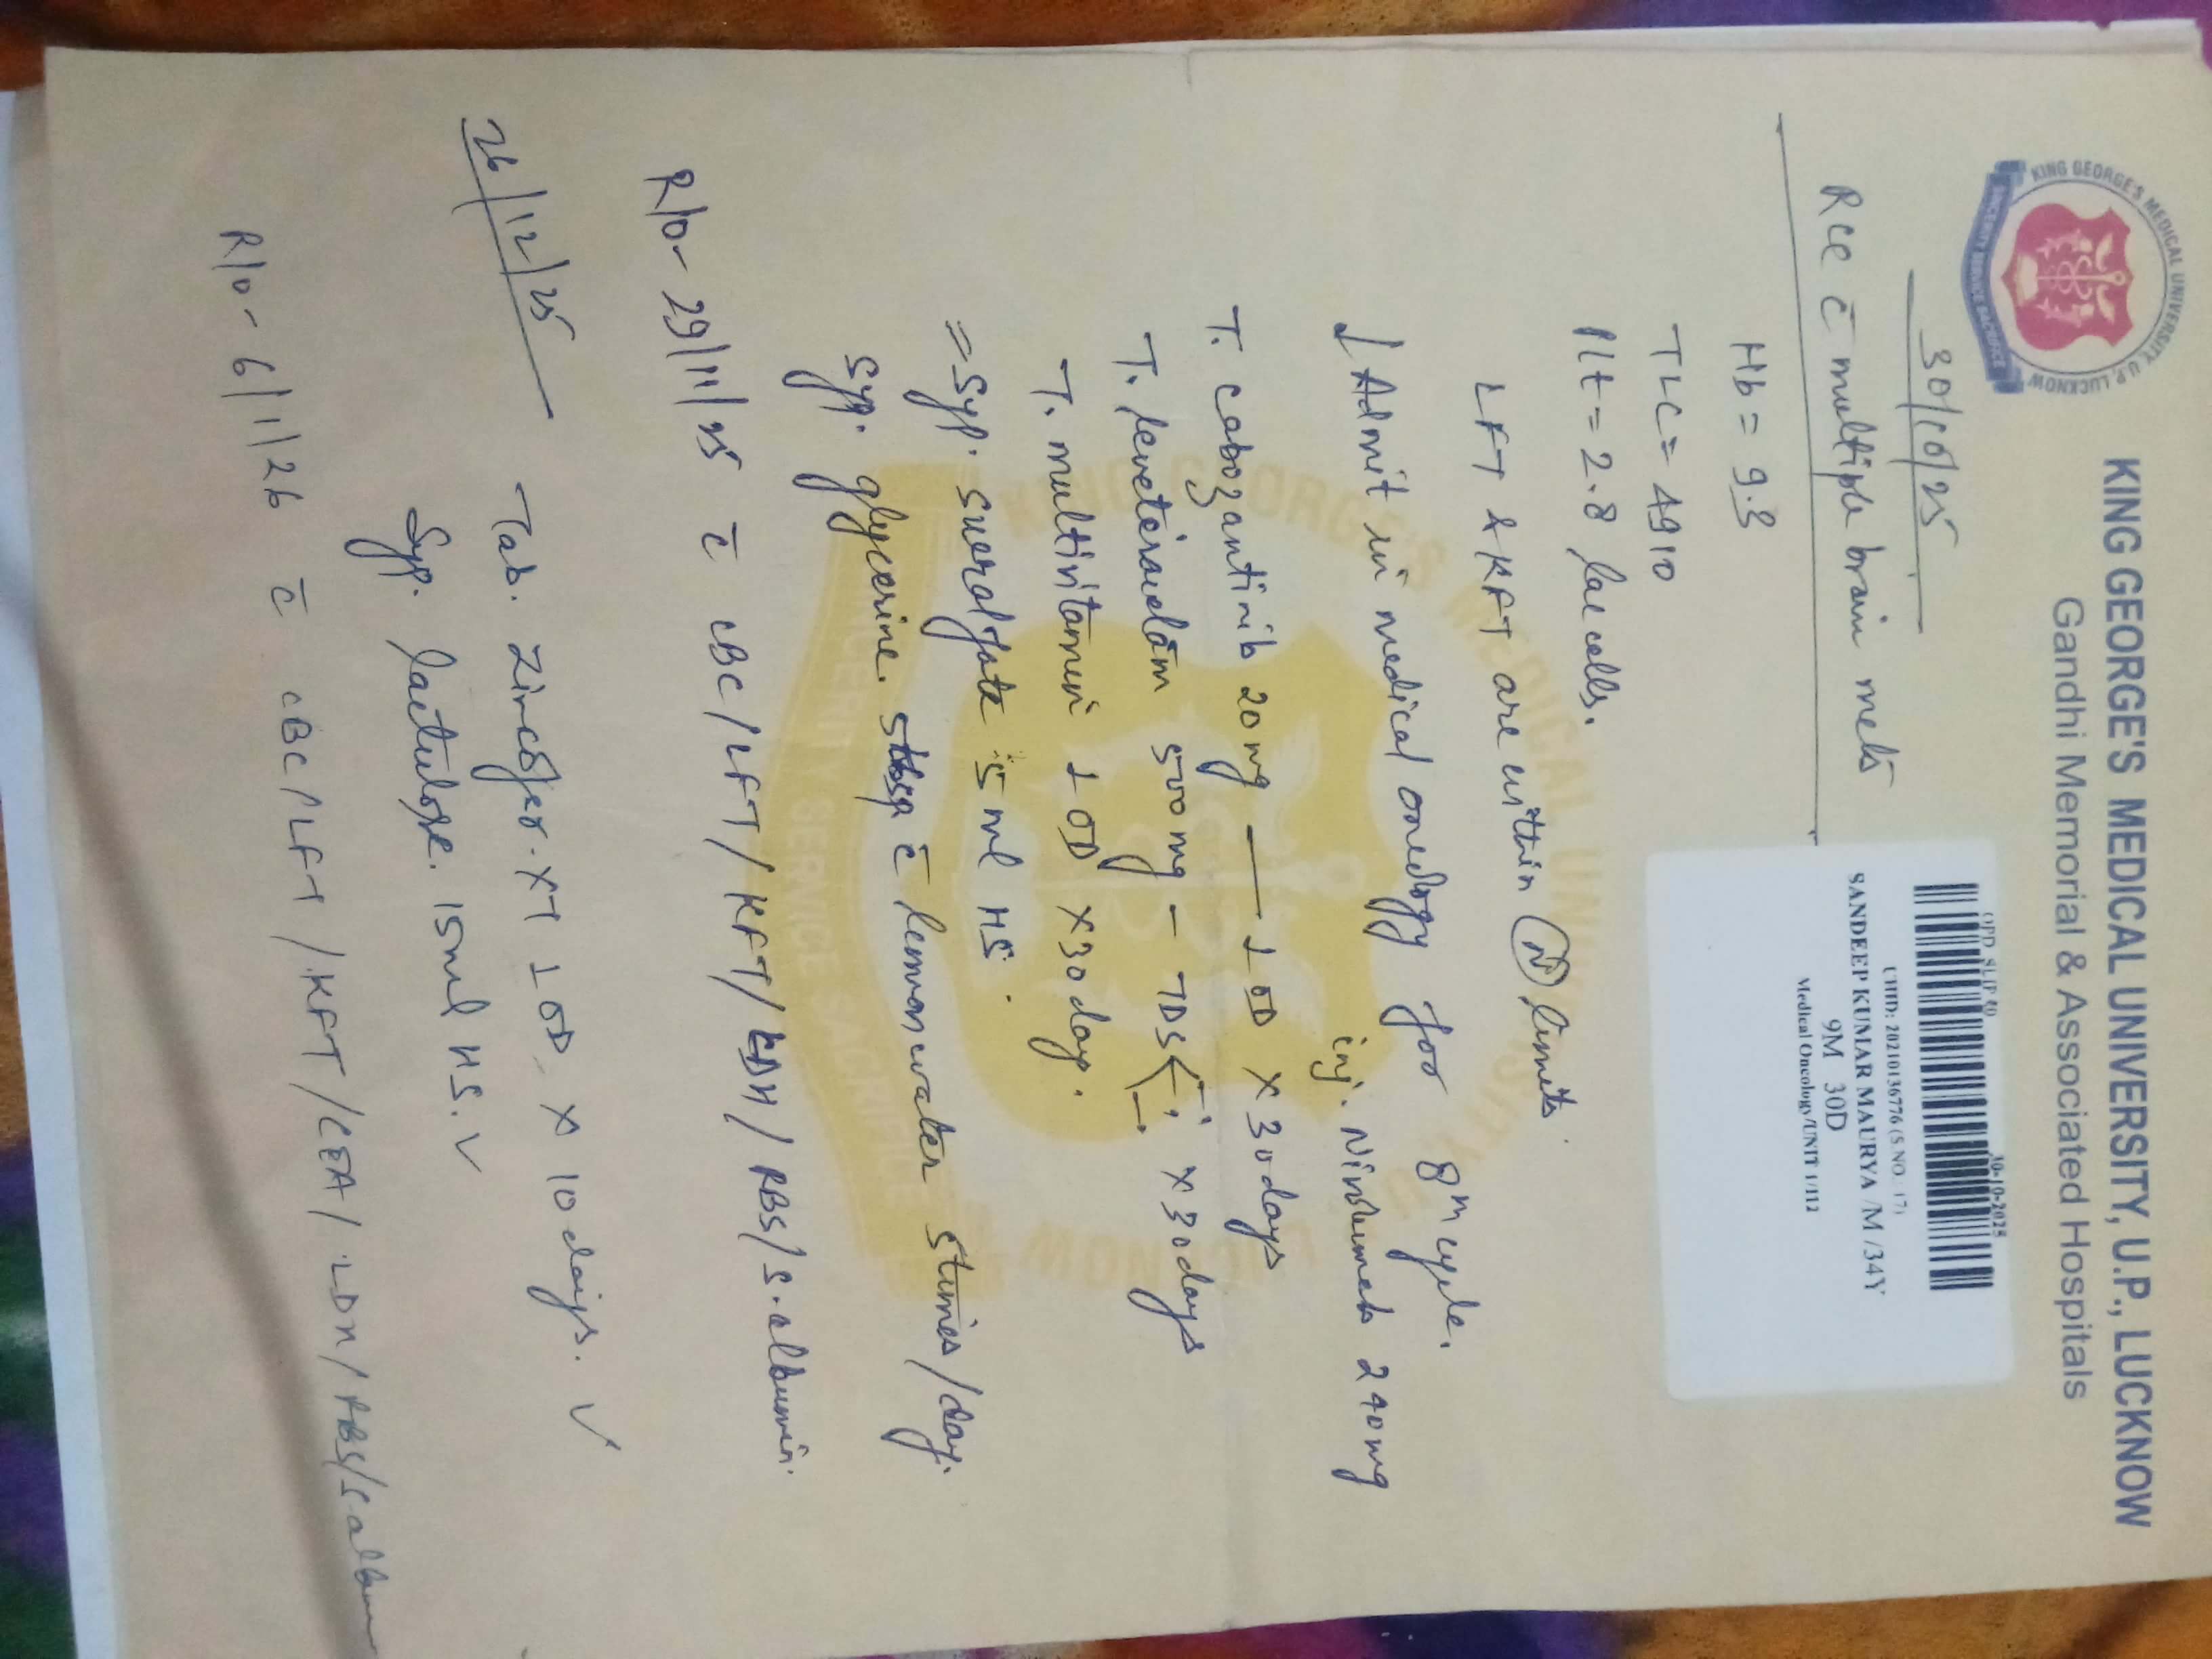 KING GEORGE'S MEDICAL UNIVERSITY, U.P., LUCKNOW
Gandhi Memorial & Associated Hospitals
KING GEORGE'S MEDICAL UNIVERSITY, U.P., LUCKNOW
SINCERITY SERVICE SACRIFICE
30/10/25
OPD SLIP
30-10-2025
UHID: 20210136776 (S NO. 17)
SANDEEP KUMAR MAURYA /M /34Y
9M 30D
Medical Oncology/UNIT 1/112
Rcc c̄ multiple brain mets
Hb = 9.3
TLC = 4910
Plt = 2.8 lac cells.
LFT & KFT are within (N) limits
Admit in medical oncology for 8th cycle.
inj. 240 mg
T. cabozantinib 20 mg — 1 OD x 30 days
T. 500 mg — TDS x 30 days
T. multivitamin 1 OD x 30 day.
= Syp. sucralfate 5 ml HS.
Syp. glycerine. c̄ lemon water 5 times/day.
R/o - 29/11/25 c̄ CBC/LFT/KFT/LDH/RBS/S. albumin.
26/12/25
Tab. Zincofer-XT 1 OD x 10 days.
Syp. lactulose. 15 ml HS.
R/o - 6/1/26 c̄ CBC/LFT/KFT/CEA/LDH/RBS/S. album
KING GEORGE'S MEDICAL UNIVERSITY LUCKNOW
SINCERITY SERVICE SACRIFICE